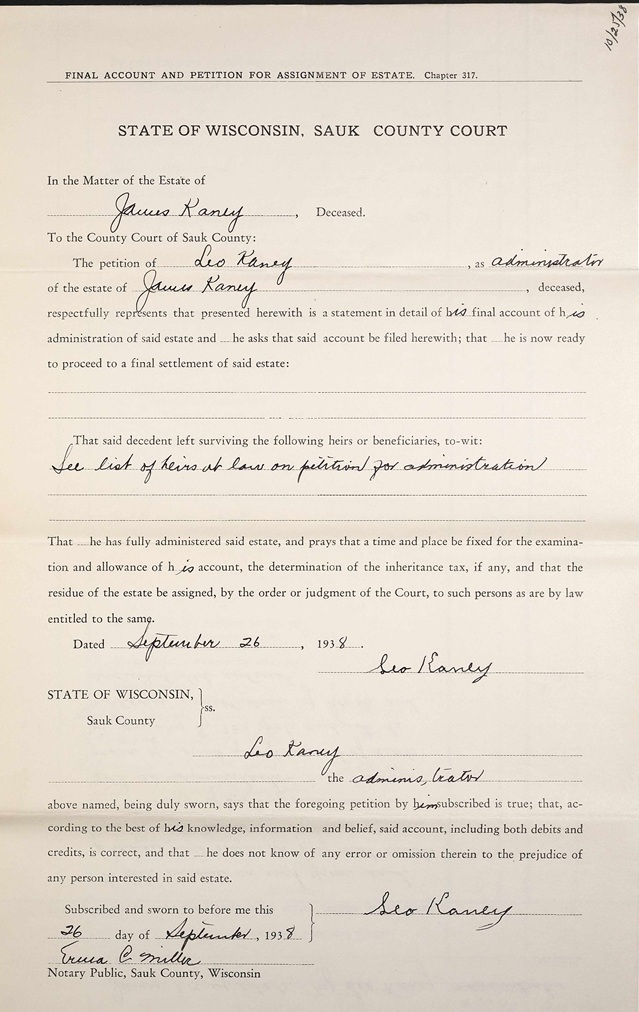 10/25/38
FINAL ACCOUNT AND PETITION FOR ASSIGNMENT OF ESTATE. Chapter 317.
STATE OF WISCONSIN, SAUK COUNTY COURT
In the Matter of the Estate of
James Kaney, Deceased.
To the County Court of Sauk County:
The petition of Leo Kaney, as administrator
of the estate of James Kaney, deceased,
respectfully represents that presented herewith is a statement in detail of his final account of his
administration of said estate and __he asks that said account be filed herewith; that __he is now ready
to proceed to a final settlement of said estate:
That said decedent left surviving the following heirs or beneficiaries, to-wit:
See list of heirs at law on petition for administration
That __he has fully administered said estate, and prays that a time and place be fixed for the examina-
tion and allowance of his account, the determination of the inheritance tax, if any, and that the
residue of the estate be assigned, by the order or judgment of the Court, to such persons as are by law
entitled to the same.
Dated September 26, 1938.
Leo Kaney
STATE OF WISCONSIN, } ss.
Sauk County
Leo Kaney
the administrator
above named, being duly sworn, says that the foregoing petition by him subscribed is true; that, ac-
cording to the best of his knowledge, information and belief, said account, including both debits and
credits, is correct, and that __he does not know of any error or omission therein to the prejudice of
any person interested in said estate.
Subscribed and sworn to before me this } Leo Kaney
26 day of September, 1938
Erma C. Miller
Notary Public, Sauk County, Wisconsin